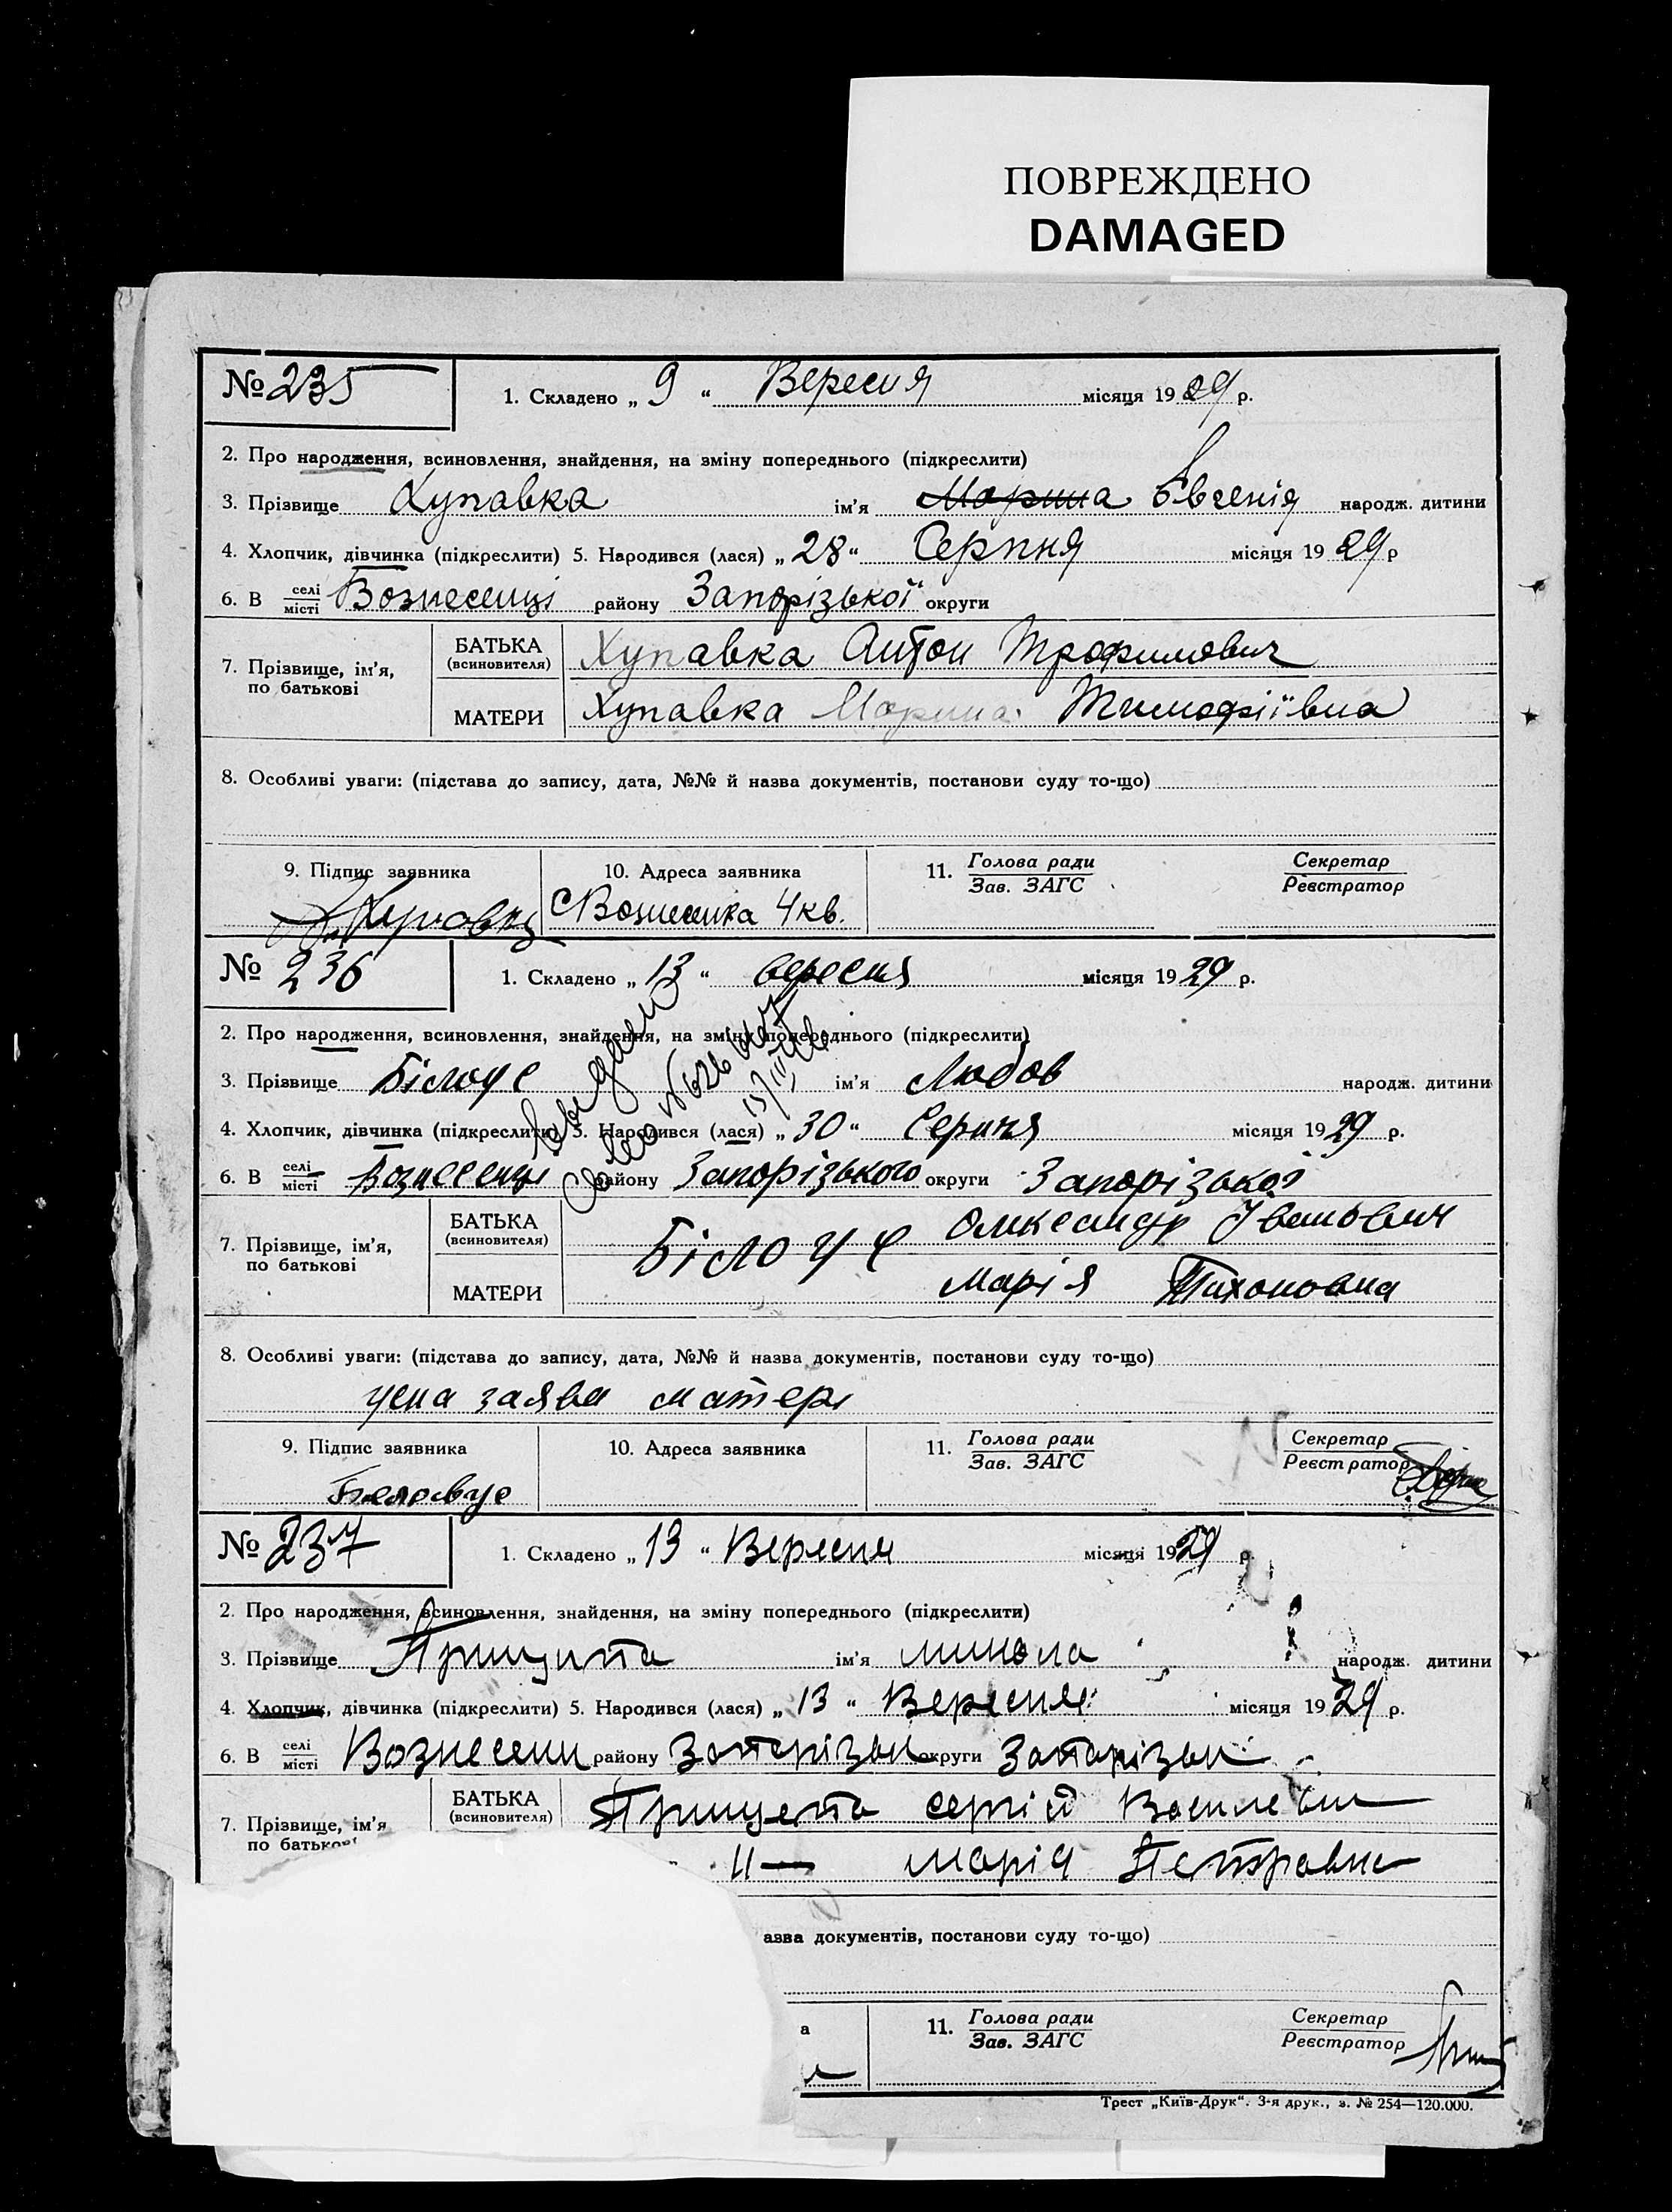 ПОВРЕЖДЕНО
DAMAGED
№ 235
1. Складено „ 9 “ Вересня місяця 1929 р.
2. Про народження, всиновлення, знайдення, на зміну попереднього (підкреслити)
3. Прізвище Хупавка ім'я Марина Євгенія народж. дитини
4. Хлопчик, дівчинка (підкреслити) 5. Народився (лася) „ 28 “ Серпня місяця 1929 р
6. В селі/місті Вознесенці району Запорізької округи
7. Прізвище, ім'я, по батькові
БАТЬКА (всиновителя) Хупавка Антон Трофимович
МАТЕРИ Хупавка Марина Тимофіївна
8. Особливі уваги: (підстава до запису, дата, №№ й назва документів, постанови суду то-що)
9. Підпис заявника 10. Адреса заявника 11. Голова ради/Зав. ЗАГС Секретар/Реєстратор
С Вознесенка 4 кв.
№ 236
1. Складено „ 13 “ вересня місяця 1929 р.
2. Про народження, всиновлення, знайдення, на зміну попереднього (підкреслити)
3. Прізвище Білоус ім'я Любов народж. дитини
4. Хлопчик, дівчинка (підкреслити) 5. Народився (лася) „ 30 “ Серпня місяця 1929 р.
6. В селі/місті Вознесенці району Запорізького округи Запорізької
7. Прізвище, ім'я, по батькові
БАТЬКА (всиновителя) Білоус Олександр Іванович
МАТЕРИ Марія Тихоновна
8. Особливі уваги: (підстава до запису, дата, №№ й назва документів, постанови суду то-що)
заява матері
9. Підпис заявника 10. Адреса заявника 11. Голова ради/Зав. ЗАГС Секретар/Реєстратор
№ 237
1. Складено „ 13 “ Вересня місяця 1929 р.
2. Про народження, всиновлення, знайдення, на зміну попереднього (підкреслити)
3. Прізвище Прищепа ім'я Микола народж. дитини
4. Хлопчик, дівчинка (підкреслити) 5. Народився (лася) „ 13 “ Вересня місяця 1929 р.
6. В селі/місті Вознесенк району Запорізьк округи Запорізьк
7. Прізвище, ім'я по батькові
БАТЬКА (всиновителя) Прищепа Сергій Василевич
-"- Марія Петравна
азва документів, постанови суду то-що)
а 11. Голова ради/Зав. ЗАГС Секретар/Реєстратор
Трест „Київ-Друк“. 3-я друк., з. № 254—120.000.